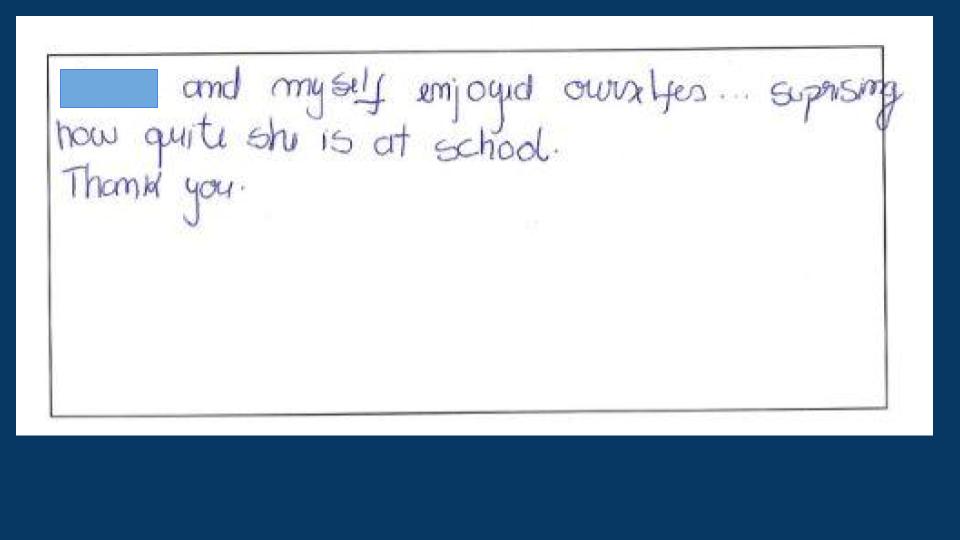 and myself enjoyed ourselfes... suprising
how quite she is at school.
Thank you.